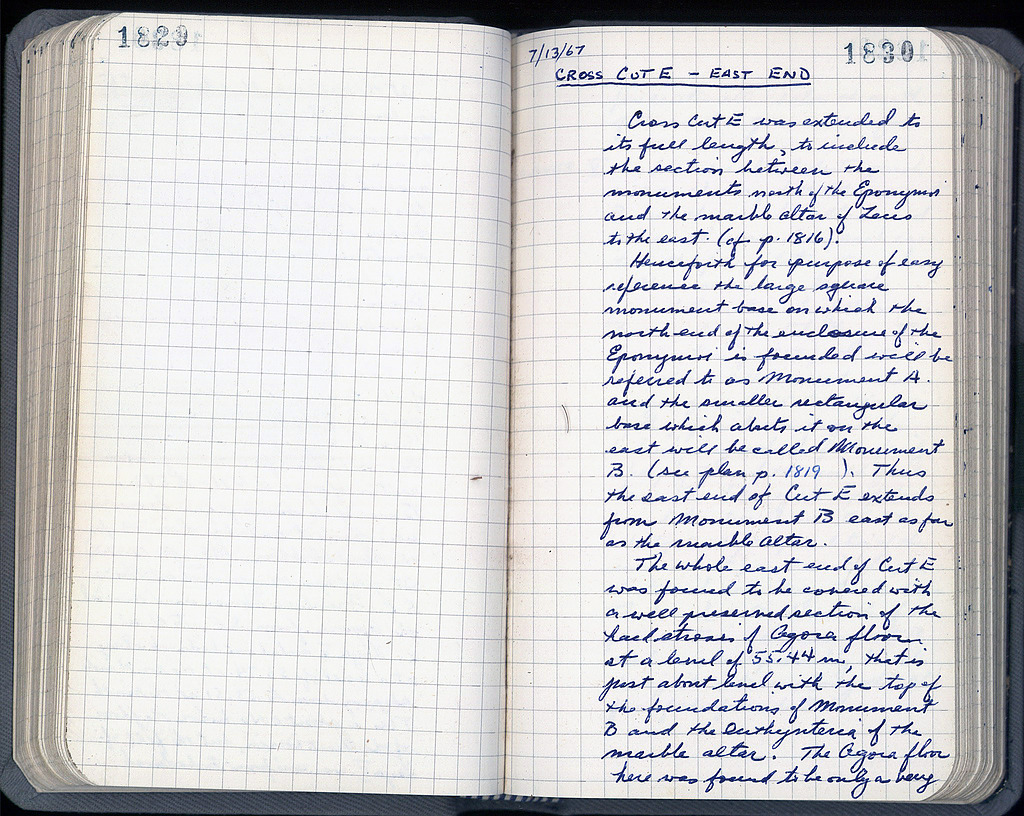 1829
7/13/67
1830
CROSS CUT E - EAST END
Cross Cut E was extended to
its full length, to include
the section between the
monuments north of the Eponymoi
and the marble altar of Zeus
to the east. (cf. p. 1816).
Henceforth for purpose of easy
reference the large square
monument base on which the
north end of the enclosure of the
Eponymoi is founded will be
referred to as Monument A.
and the smaller rectangular
base which abuts it on the
east will be called Monument
B. (see plan p. 1819 ). Thus
the east end of Cut E extends
from Monument B east as far
as the marble altar.
The whole east end of Cut E
was found to be covered with
a well preserved section of the
hard stroses of Agora floor
at a level of 55.44 m, that is
just about level with the top of
the foundations of Monument
B and the euthynteria of the
marble altar. The Agora floor
here was found to be only a very